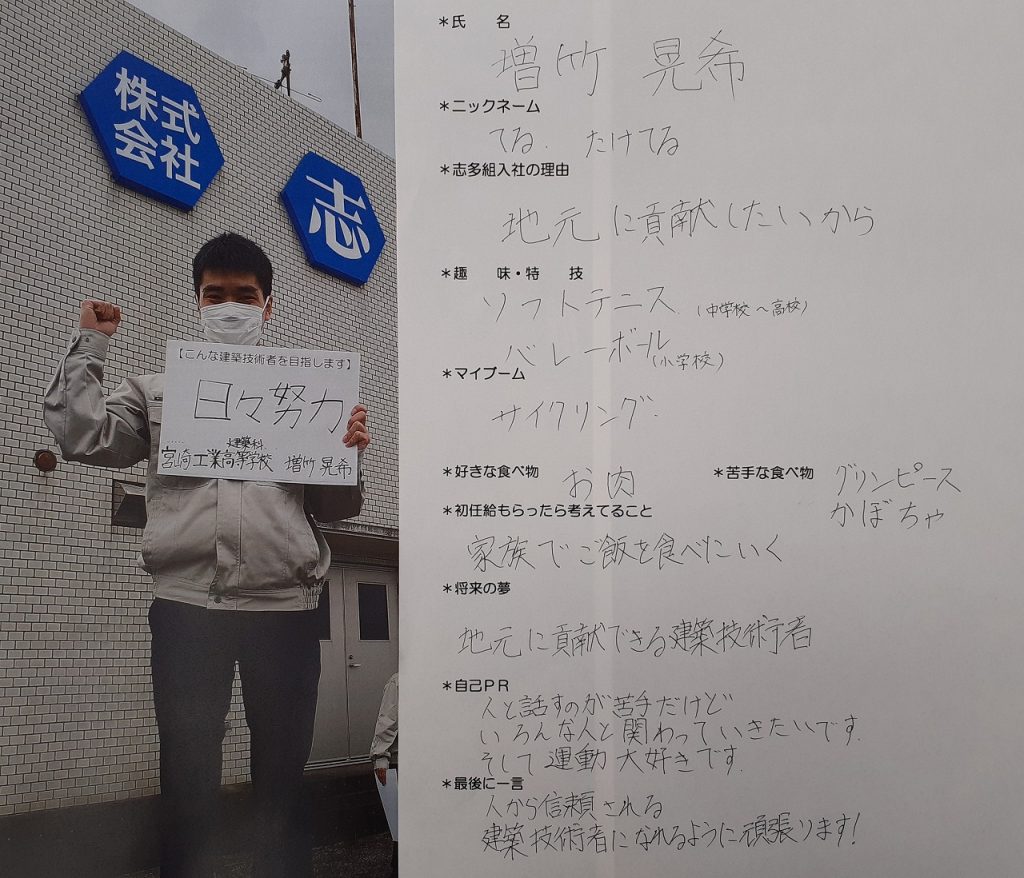 株式
会社
志
【こんな建築技術者を目指します】
日々努力
建築科
宮崎工業高等学校 増竹晃希
*氏 名
増竹 晃希
*ニックネーム
てる. たけてる
*志多組入社の理由
地元に貢献したいから
*趣 味・特 技
ソフトテニス (中学校～高校)
バレーボール(小学校)
*マイブーム
サイクリング.
*好きな食べ物 お肉
*苦手な食べ物 グリンピース
かぼちゃ
*初任給もらったら考えてること
家族でご飯を食べにいく
*将来の夢
地元に貢献できる建築技術者
*自己PR
人と話すのが苦手だけど
いろんな人と関わっていきたいです.
そして運動大好きです.
*最後に一言
人から信頼される
建築技術者になれるように頑張ります!